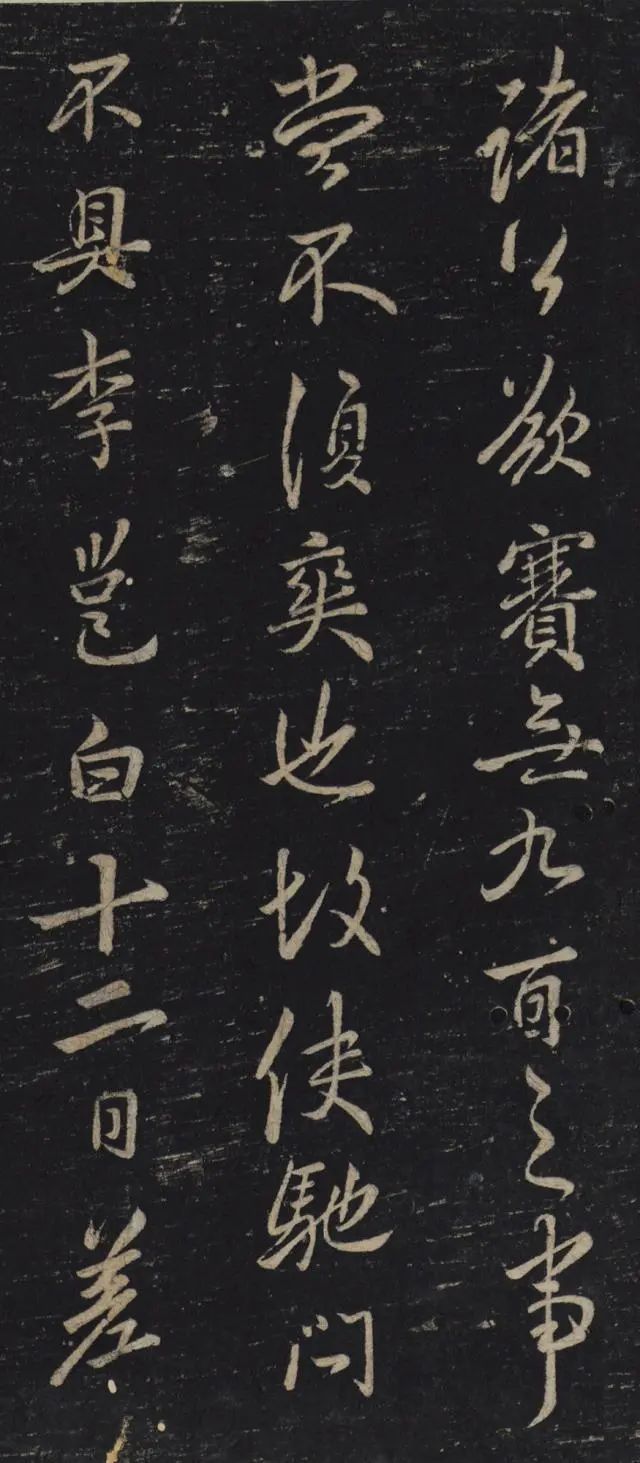 諸公欲賽無九百之事
當不須奕也故使馳問
不具李邕白十二日差